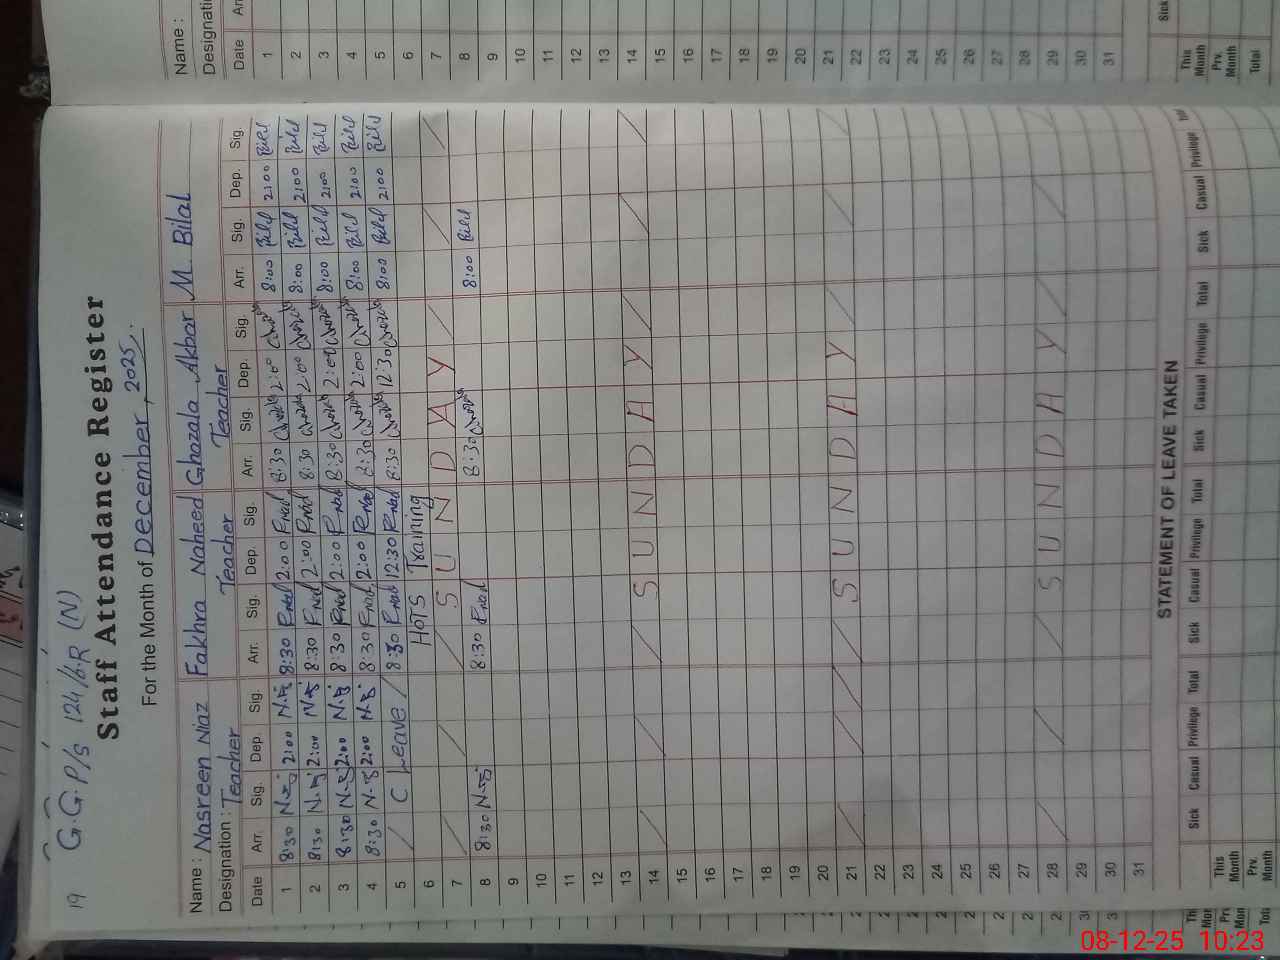 19 G.G.P/S 124/6.R (N)
Staff Attendance Register
For the Month of December, 2025.
Name : Nasreen Niaz Fakhra Naheed Ghazala Akbar M. Bilal
Designation : Teacher Teacher Teacher
Date Arr. Sig. Dep. Sig. Arr. Sig. Dep. Sig. Arr. Sig. Dep. Sig. Arr. Sig. Dep. Sig.
1 8:30 2:00 8:30 2:00 8:30 2:00 8:00 2:00
2 8:30 2:00 8:30 2:00 8:30 2:00 8:00 2:00
3 8:30 2:00 8:30 2:00 8:30 2:00 8:00 2:00
4 8:30 2:00 8:30 2:00 8:30 2:00 8:00 2:00
5 C Leave 8:30 12:30 8:30 12:30 8:00 2:00
6 HOTS Training
7 SUNDAY
8 8:30 8:30 8:30 8:00
9
10
11
12
13
14 SUNDAY
15
16
17
18
19
20
21 SUNDAY
22
23
24
25
26
27
28 SUNDAY
29
30
31
STATEMENT OF LEAVE TAKEN
Sick Casual Privilege Total Sick Casual Privilege Total Sick Casual Privilege Total Sick Casual Privilege
This Month
Prv. Month
Name :
Date Arr.
1
2
3
4
5
6
7
8
9
10
11
12
13
14
15
16
17
18
19
20
21
22
23
24
25
26
27
28
29
30
31
Sick
This Month
Prv. Month
Total
08-12-25 10:23